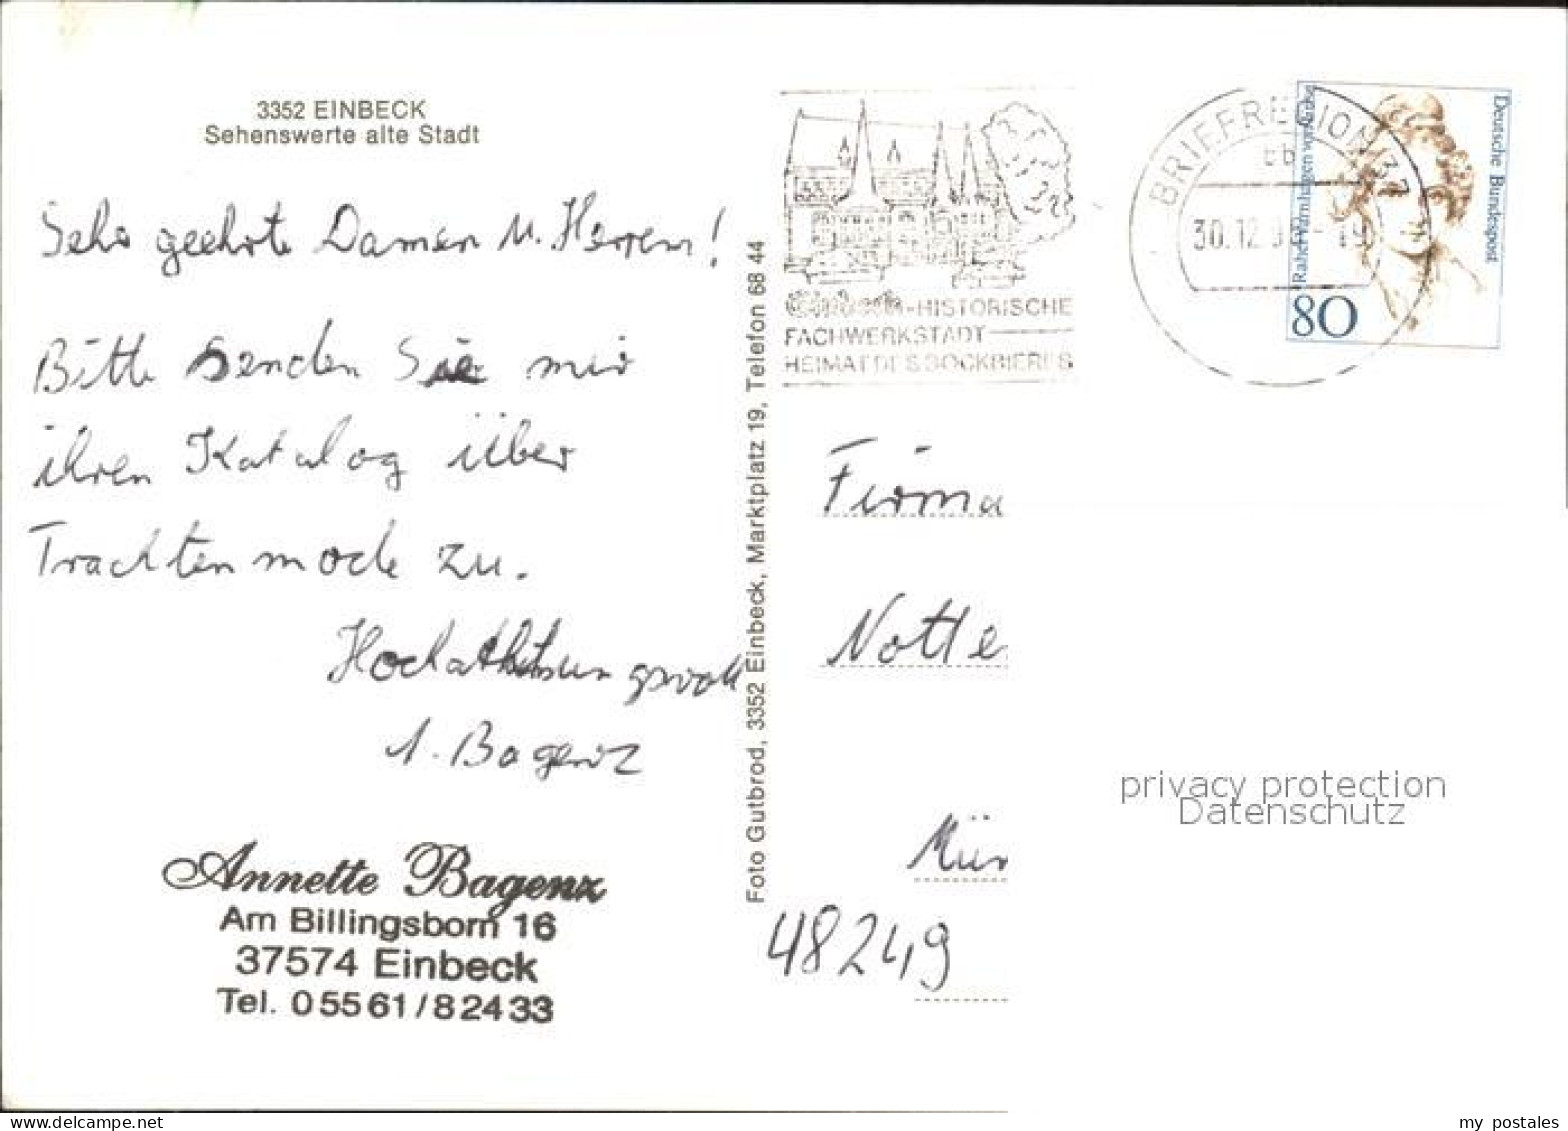 3352 EINBECK
Sehenswerte alte Stadt
Sehr geehrte Damen u. Herren!
Bitte senden Sie mir
ihren Katalog über
Trachtenmode zu.
Hochachtungsvoll
A. Bagenz
Annette Bagenz
Am Billingsborn 16
37574 Einbeck
Tel. 05561/82433
Foto Gutbrod, 3352 Einbeck, Marktplatz 19, Telefon 68 44
-HISTORISCHE
FACHWERKSTADT
HEIMAT DES BOCKBIERES
BRIEFREGION 37
bb
30.12.9 -19
Deutsche Bundespost
Rahel Varnhagen von Ense
80
Firma
Notte
Mün
48249
privacy protection
Datenschutz
my postales